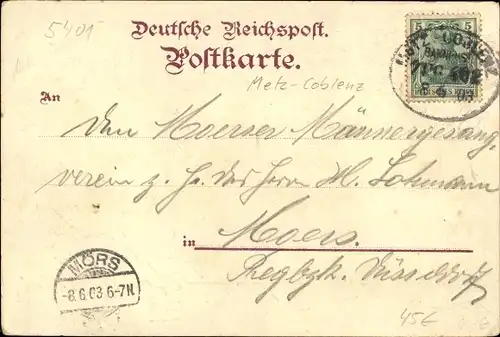 5401
Deutsche Reichspost.
Postkarte.
Metz-Coblenz
5 5
METZ - COBLENZ
BAHNPOST
ZUG
8 6 03
An
den Moerser Männergesang,
verein z. Hd. des Herrn H. Lohmann
in Moers.
Regbzk. Düsseldorf
MÖRS
-8.6.03 6-7N.
45€